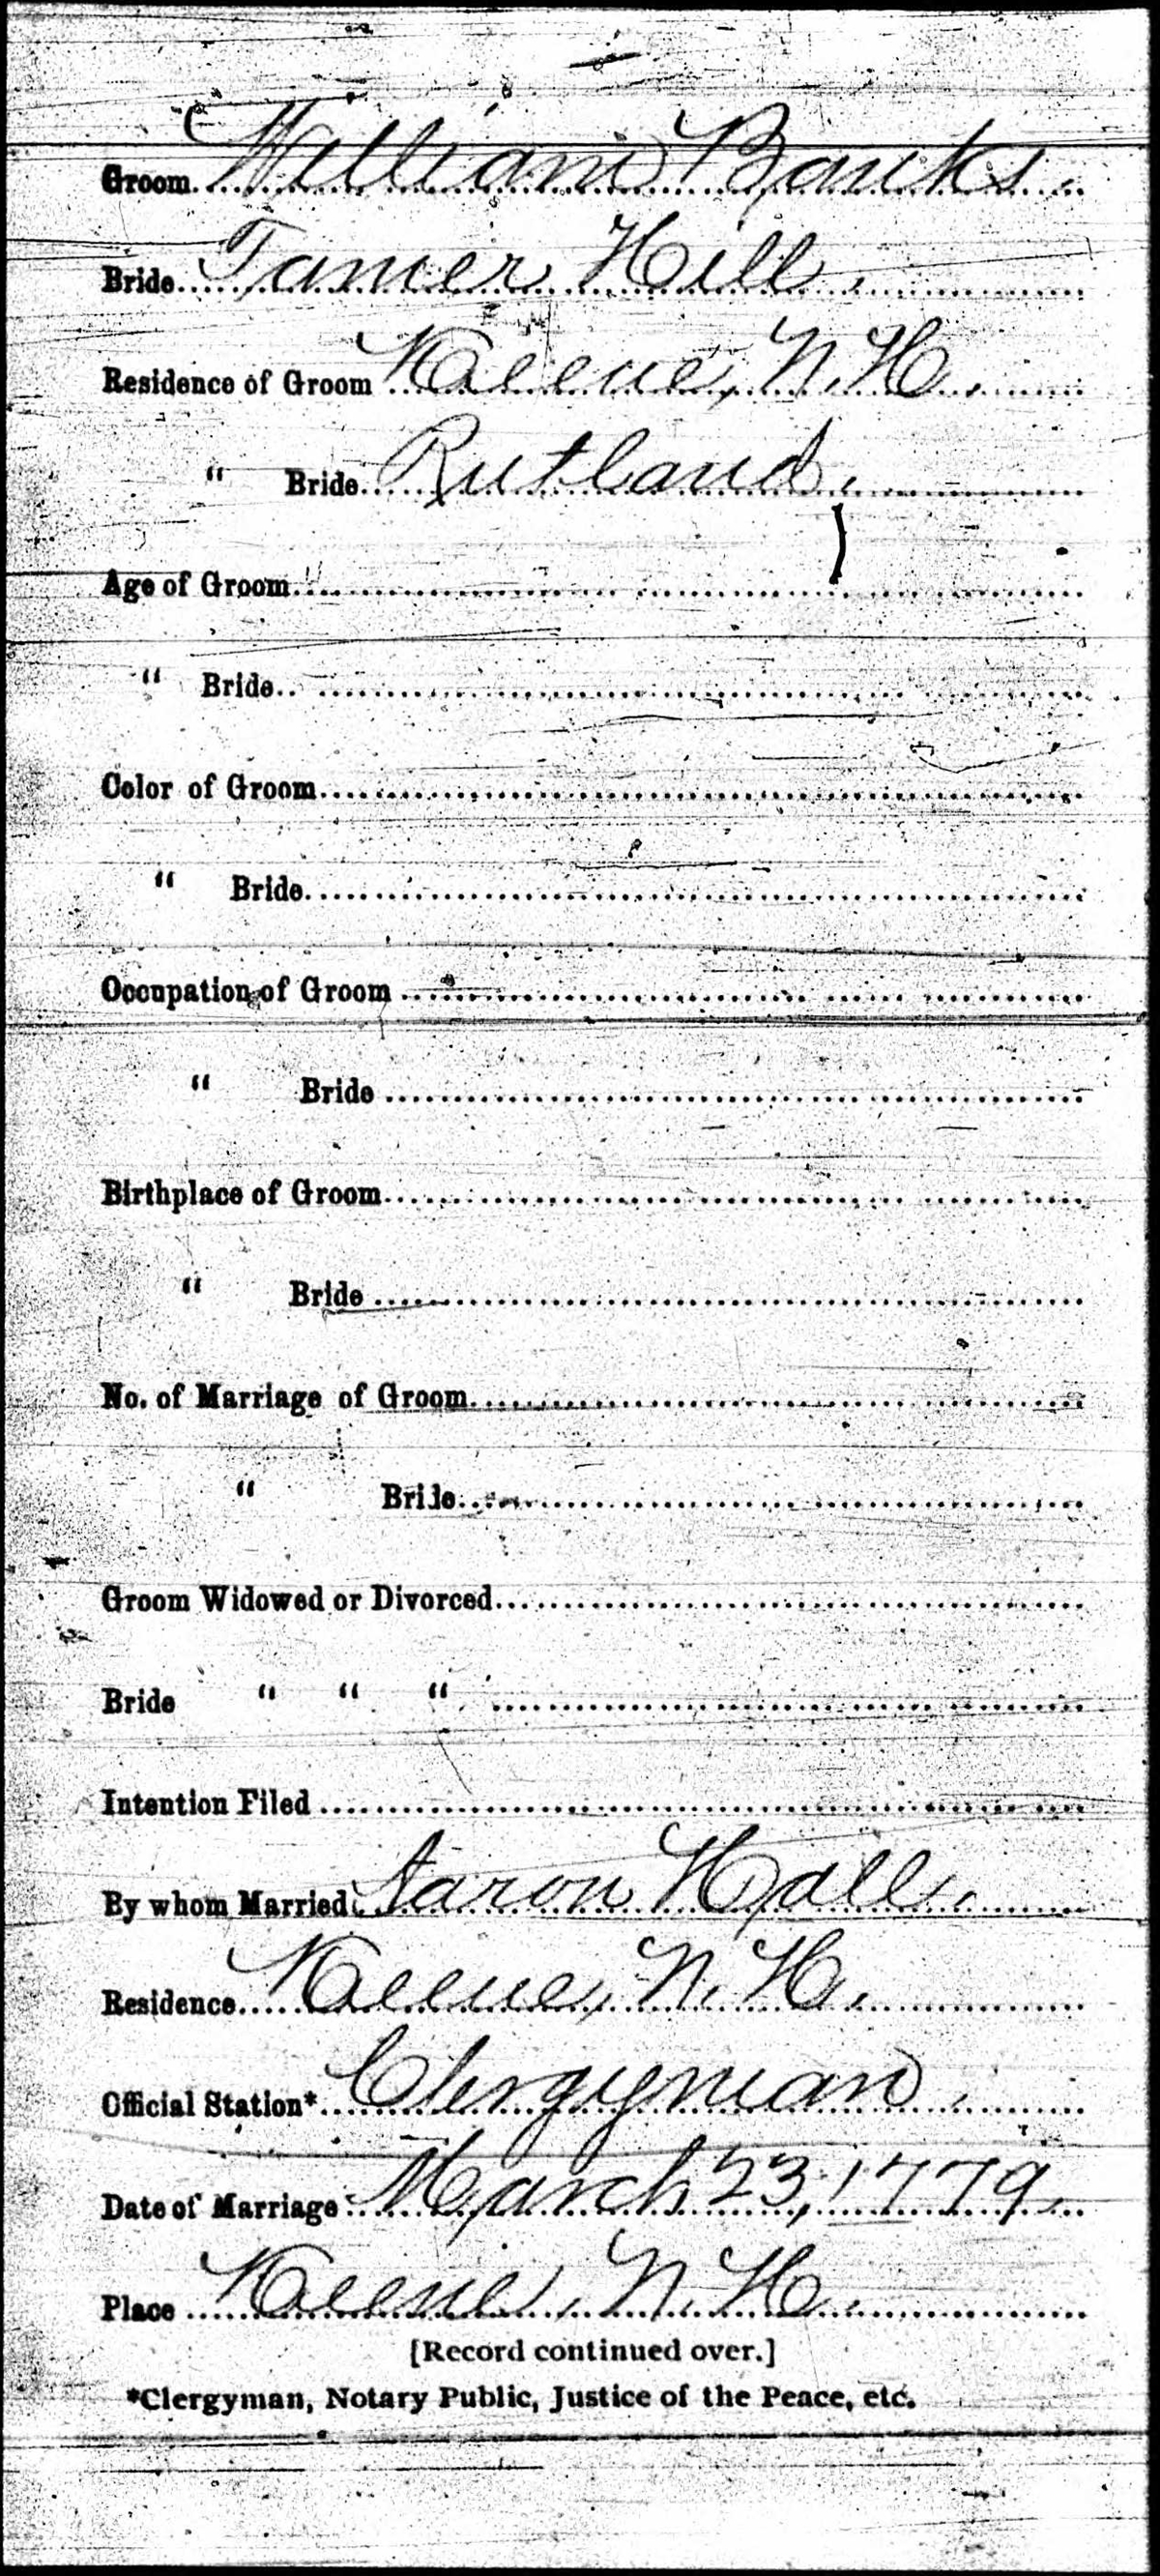 Groom William Banks.
Bride Tamer Hill.
Residence of Groom Keene, N.H.
" Bride Rutland.
Age of Groom
" Bride
Color of Groom
" Bride
Occupation of Groom
" Bride
Birthplace of Groom
" Bride
No. of Marriage of Groom
" Bride
Groom Widowed or Divorced
Bride " " "
Intention Filed
By whom Married Aaron Hall.
Residence Keene, N.H.
Official Station* Clergyman.
Date of Marriage March 23, 1779.
Place Keene, N.H.
[Record continued over.]
*Clergyman, Notary Public, Justice of the Peace, etc.